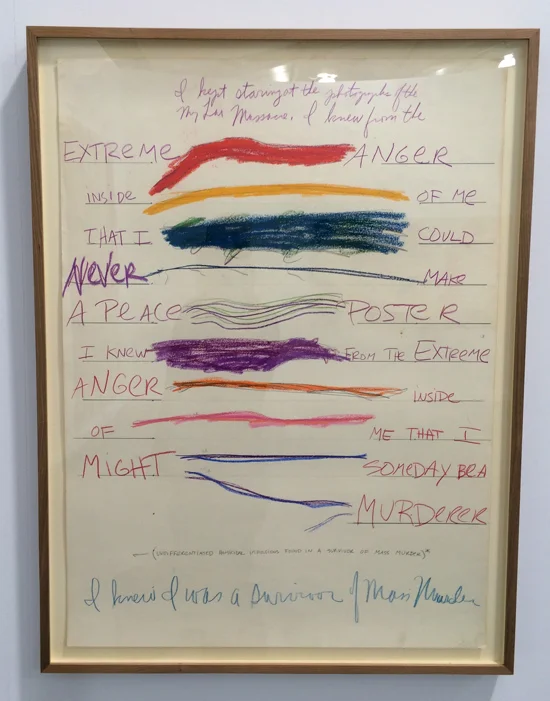 I kept staring at the photographs of the
My Lai Massacre. I knew from the
EXTREME ANGER
INSIDE OF ME
THAT I COULD
NEVER MAKE
A PEACE POSTER
I KNEW FROM THE EXTREME
ANGER INSIDE
OF ME THAT I
MIGHT SOMEDAY BE A
MURDERER
(UNDIFFERENTIATED HOMICIDAL INTENTIONS FOUND IN A SURVIVOR OF MASS MURDER)*
I knew I was a survivor of Mass Murder